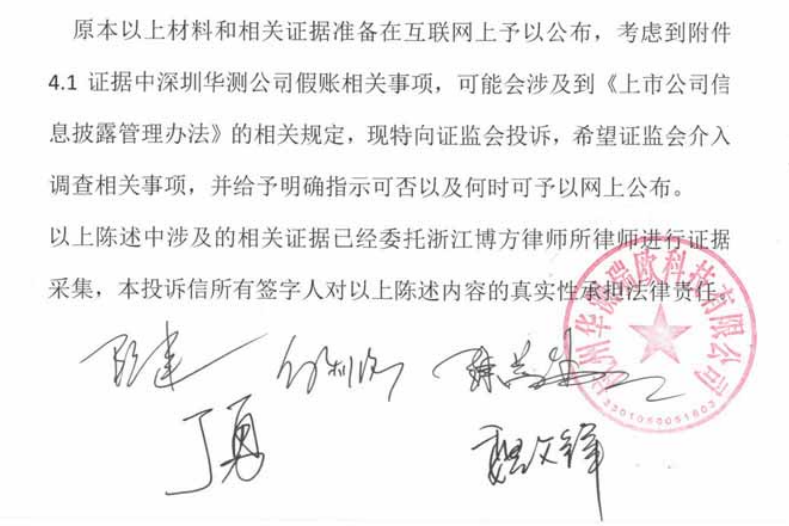 原本以上材料和相关证据准备在互联网上予以公布，考虑到附件
4.1 证据中深圳华测公司假账相关事项，可能会涉及到《上市公司信
息披露管理办法》的相关规定，现特向证监会投诉，希望证监会介入
调查相关事项，并给予明确指示可否以及何时可予以网上公布。
以上陈述中涉及的相关证据已经委托浙江博方律师所律师进行证据
采集，本投诉信所有签字人对以上陈述内容的真实性承担法律责任。
杭州华测瑞欧科技有限公司
丁勇
魏文锋